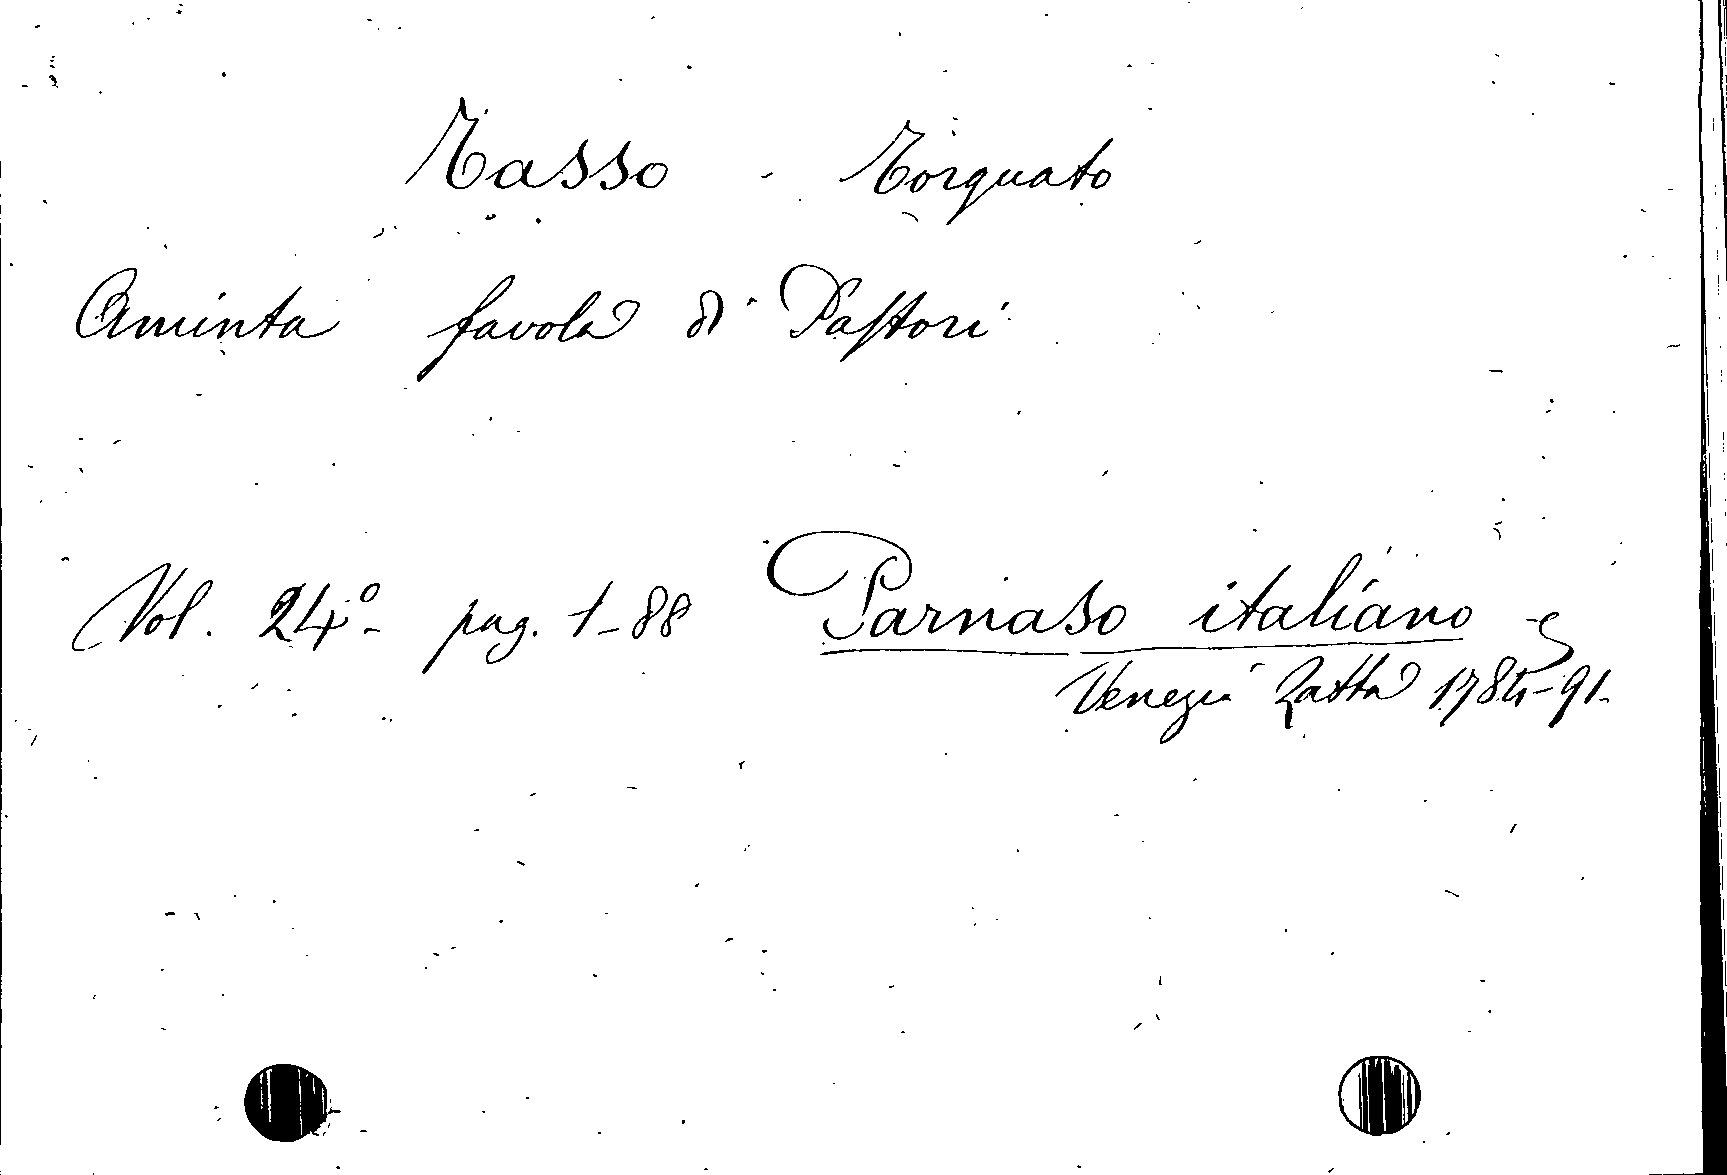 Tasso - Torquato
Aminta favola di Pastori
Vol. 24° - pag. 1-88 Parnaso italiano -
Venezia Zatta 1784-91.